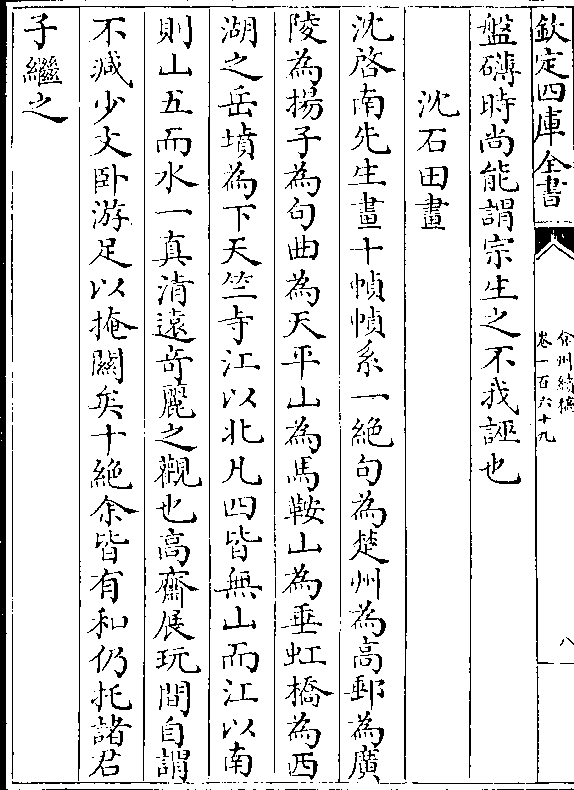 欽定四庫全書
弇州續稿
卷一百六十九
八
盤礴時尚能謂宗生之不我誣也
沈石田畫
沈啓南先生畫十幀幀系一絕句為楚州為高郵為廣
陵為揚子為句曲為天平山為馬鞍山為垂虹橋為西
湖之岳墳為下天竺寺江以北凡四皆無山而江以南
則山五而水一真清遠奇麗之觀也高齋展玩間自謂
不減少文卧游足以掩關矣十絕余皆有和仍托諸君
子繼之